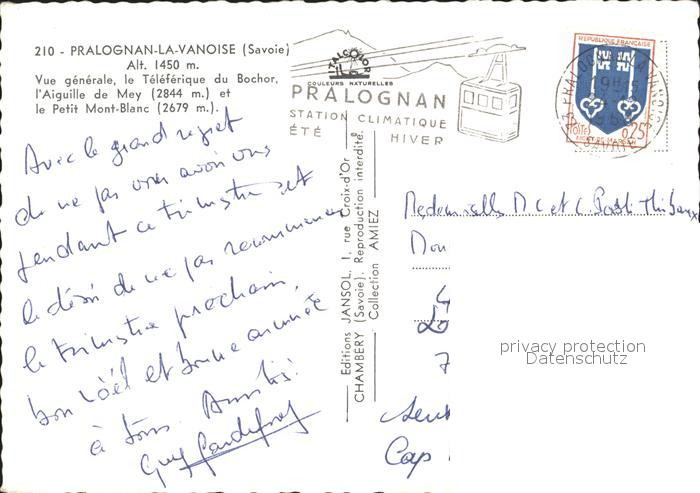 210 - PRALOGNAN-LA-VANOISE (Savoie)
Alt. 1450 m.
Vue générale, le Téléférique du Bochor,
l'Aiguille de Mey (2844 m.) et
le Petit Mont-Blanc (2679 m.).
ITALCOLOR
COULEURS NATURELLES
PRALOGNAN
STATION CLIMATIQUE
ÉTÉ HIVER
REPUBLIQUE FRANÇAISE
POSTES 0,25
MONT-DE-MARSAN
PRALOGNAN LA VANOISE
SAVOIE
Avec le grand regret
de ne pas vous avoir vus
pendant ce trimestre et
le désir de ne pas recommencer
le trimestre prochain,
bon Noël et bonne année
à tous. Amitiés
Guy
Editions JANSOL, 1, rue Croix-d'Or
CHAMBÉRY (Savoie). Reproduction interdite.
Collection AMIEZ
Mademoiselles M C et C
Mou
7
Cap
privacy protection
Datenschutz